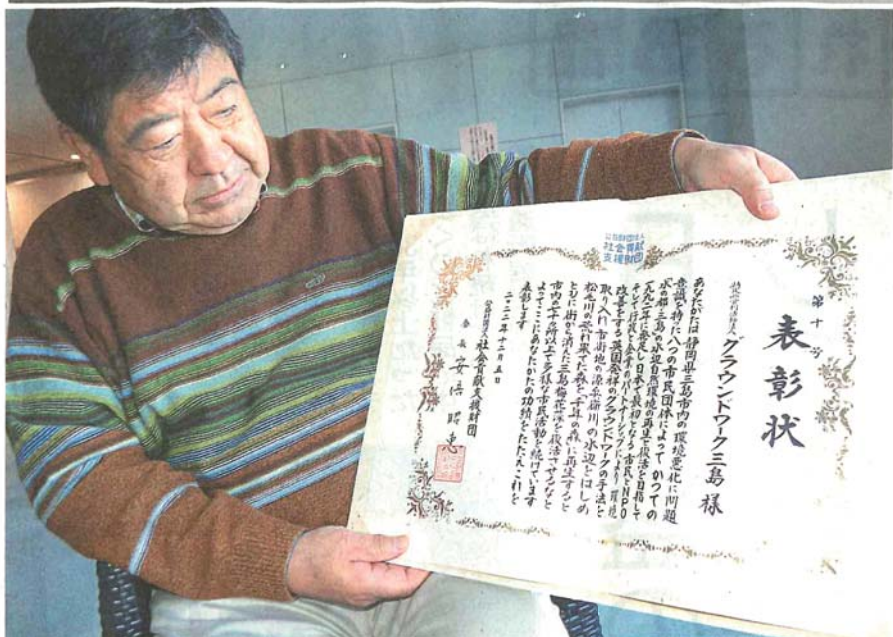 第十号
表彰状
特定非営利活動法人
グラウンドワーク三島 様
あなたがたは静岡県三島市内の環境悪化に問題
意識を持った八つの市民団体によって かつての
水の都・三島の水辺自然環境の再生と復活を目指して
一九九二年に発足し日本で最初となる市民とNPO
そして行政と企業のパートナーシップにより 環境
改善をする英国発祥のグラウンドワークの手法を
取り入れ 市街地の源兵衛川の水辺をはじめ
松毛川の荒れ果てた森を「千年の森」に再生すると
ともに街から消えた三島梅花藻を復活させるなど
市内の七十カ所以上で多様な市民活動を続けています
よってここにあなたがたの功績をたたえこれを
表彰します
二〇二二年十二月五日
公益財団法人 社会貢献支援財団
会長 安倍昭恵
公益財団法人
社会貢献
支援財団